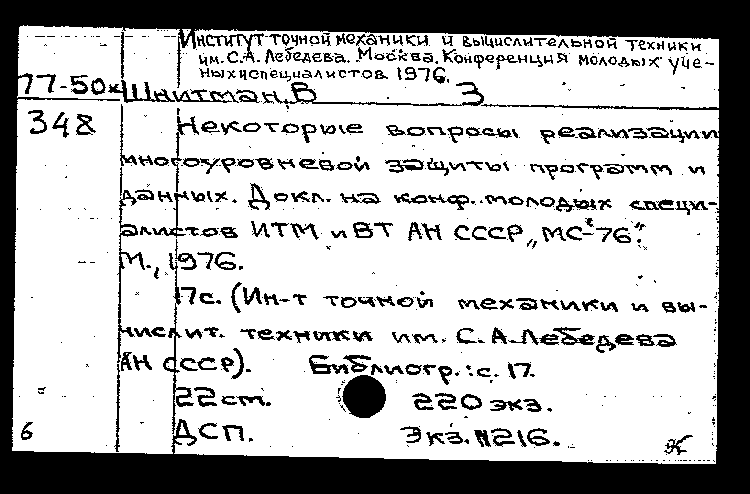 Институт точной механики и вычислительной техники
им. С.А. Лебедева. Москва. Конференция молодых уче-
ных и специалистов 1976.
77-50к Шнитман, В 3
348 Некоторые вопросы реализации
многоуровневой защиты программ и
данных. Докл. на конф. молодых специ-
алистов ИТМ и ВТ АН СССР „МС-76".
М., 1976.
17с. (Ин-т точной механики и вы-
числит. техники им. С.А. Лебедева
АН СССР). Библиогр.: с. 17.
22 см. 220 экз.
6 ДСП. Экз. №216.